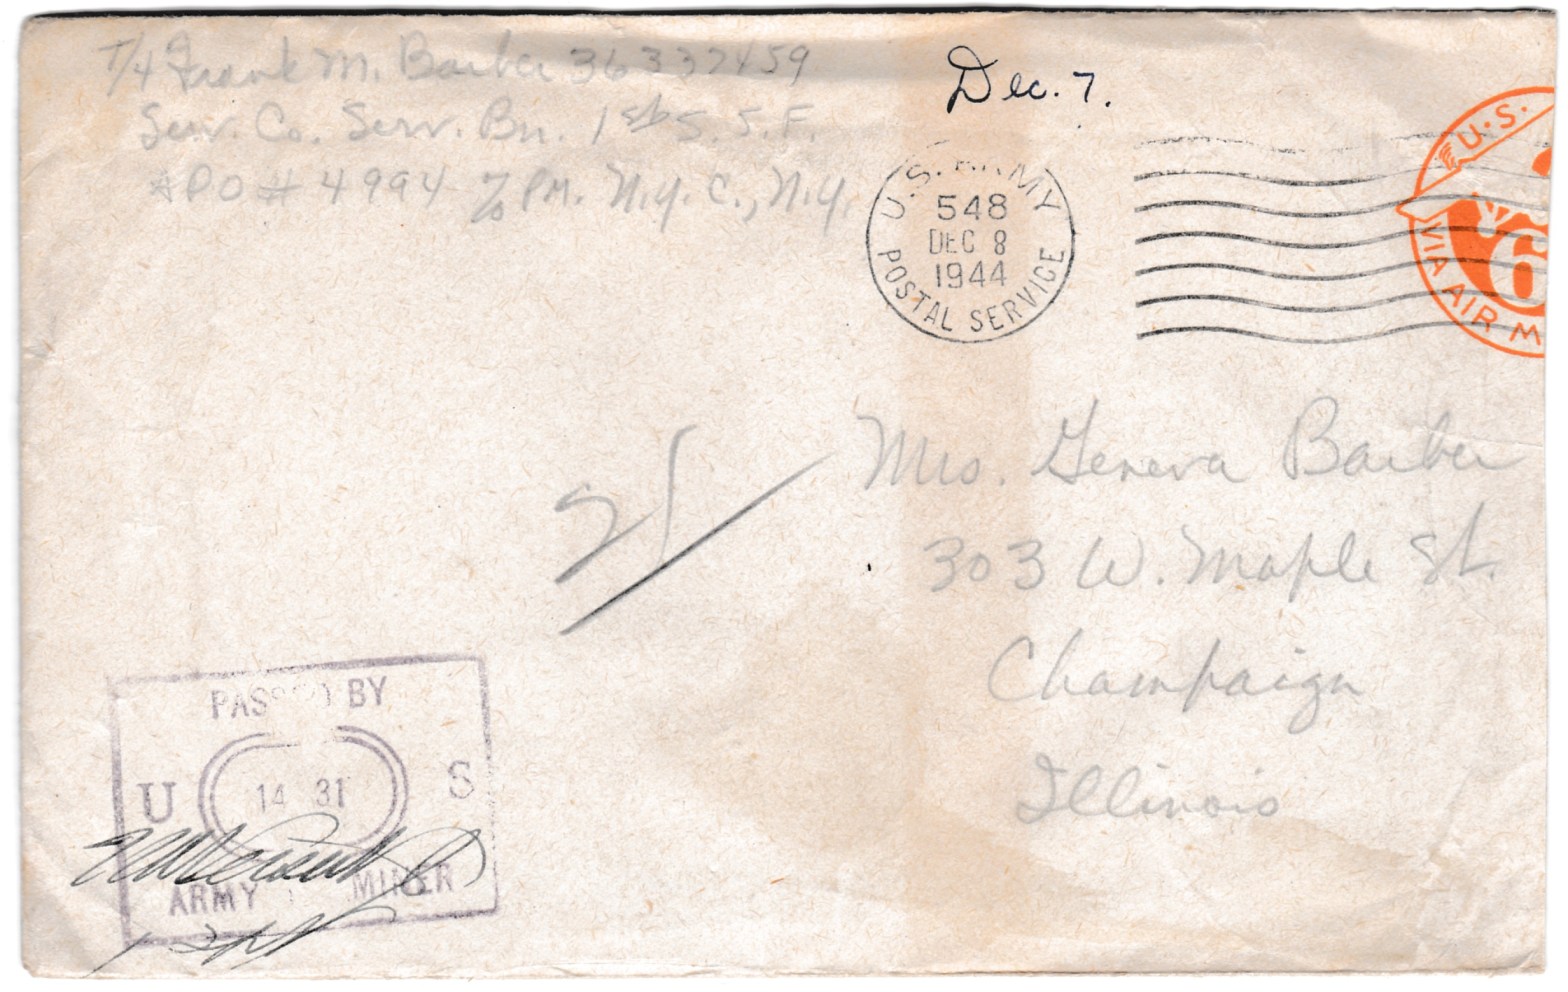 T/4 Frank M. Barber 36337459
Serv. Co. Serv. Bn. 1st S. S. F.
APO # 4994 c/o PM. N.Y.C., N.Y.
Dec. 7.
U.S. ARMY
548
DEC 8
1944
POSTAL SERVICE
U.S.
6
VIA AIR M
Mrs. Geneva Barber
303 W. Maple St.
Champaign
Illinois
PASSED BY
U 14 31 S
ARMY